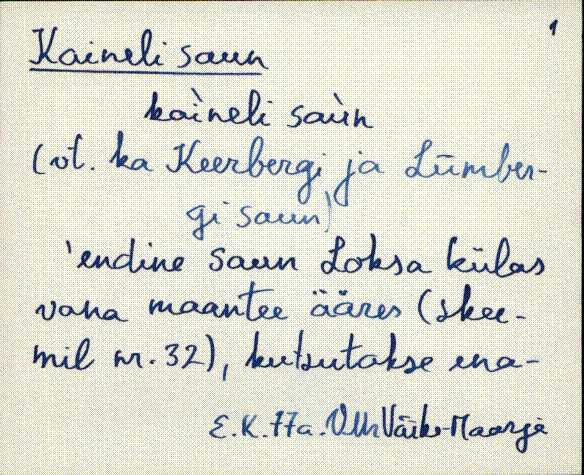 1
Kaineli saun
kaìneli saùn
(vt. ka Keerbergi ja Lümber-
gi saun)
'endine saun Loksa külas
vana maantee ääres (skee-
mil nr. 32), kutsutakse ena-
E.K. 77a. Väike-Maarja